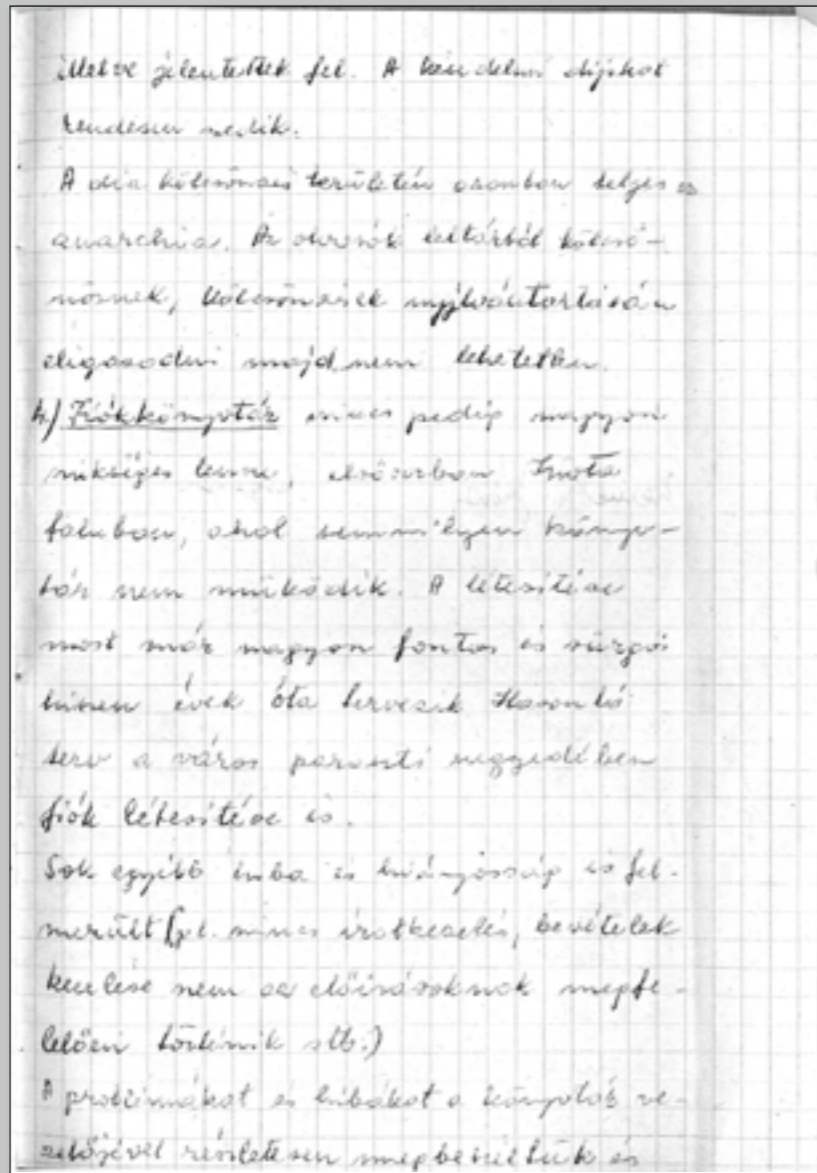 illetve jelentettek fel. A késedelmi díjakat
rendesen szedik.
A dia kölcsönzés területén azonban teljes az
anarchia. Az olvasók leltárból kölcsö-
nöznek, kölcsönzések nyilvántartásán
eligazodni majdnem lehetetlen.
4.) Fiókkönyvtár nincs pedig nagyon
szükséges lenne, elsősorban Inota
faluban, ahol semmilyen könyv-
tár nem működik. A létesítése
most már nagyon fontos és sürgős
hiszen évek óta tervezik Hasonló
terv a város negyedében
fiók létesítése is.
Sok egyéb hiba és hiányosság is fel-
merült (pl. nincs iratkezelés, bevételek
kezelése nem az előírásoknak megfe-
lelően történik stb.)
A problémákat és hibákat a könyvtár ve-
zetőjével részletesen megbeszéltük és